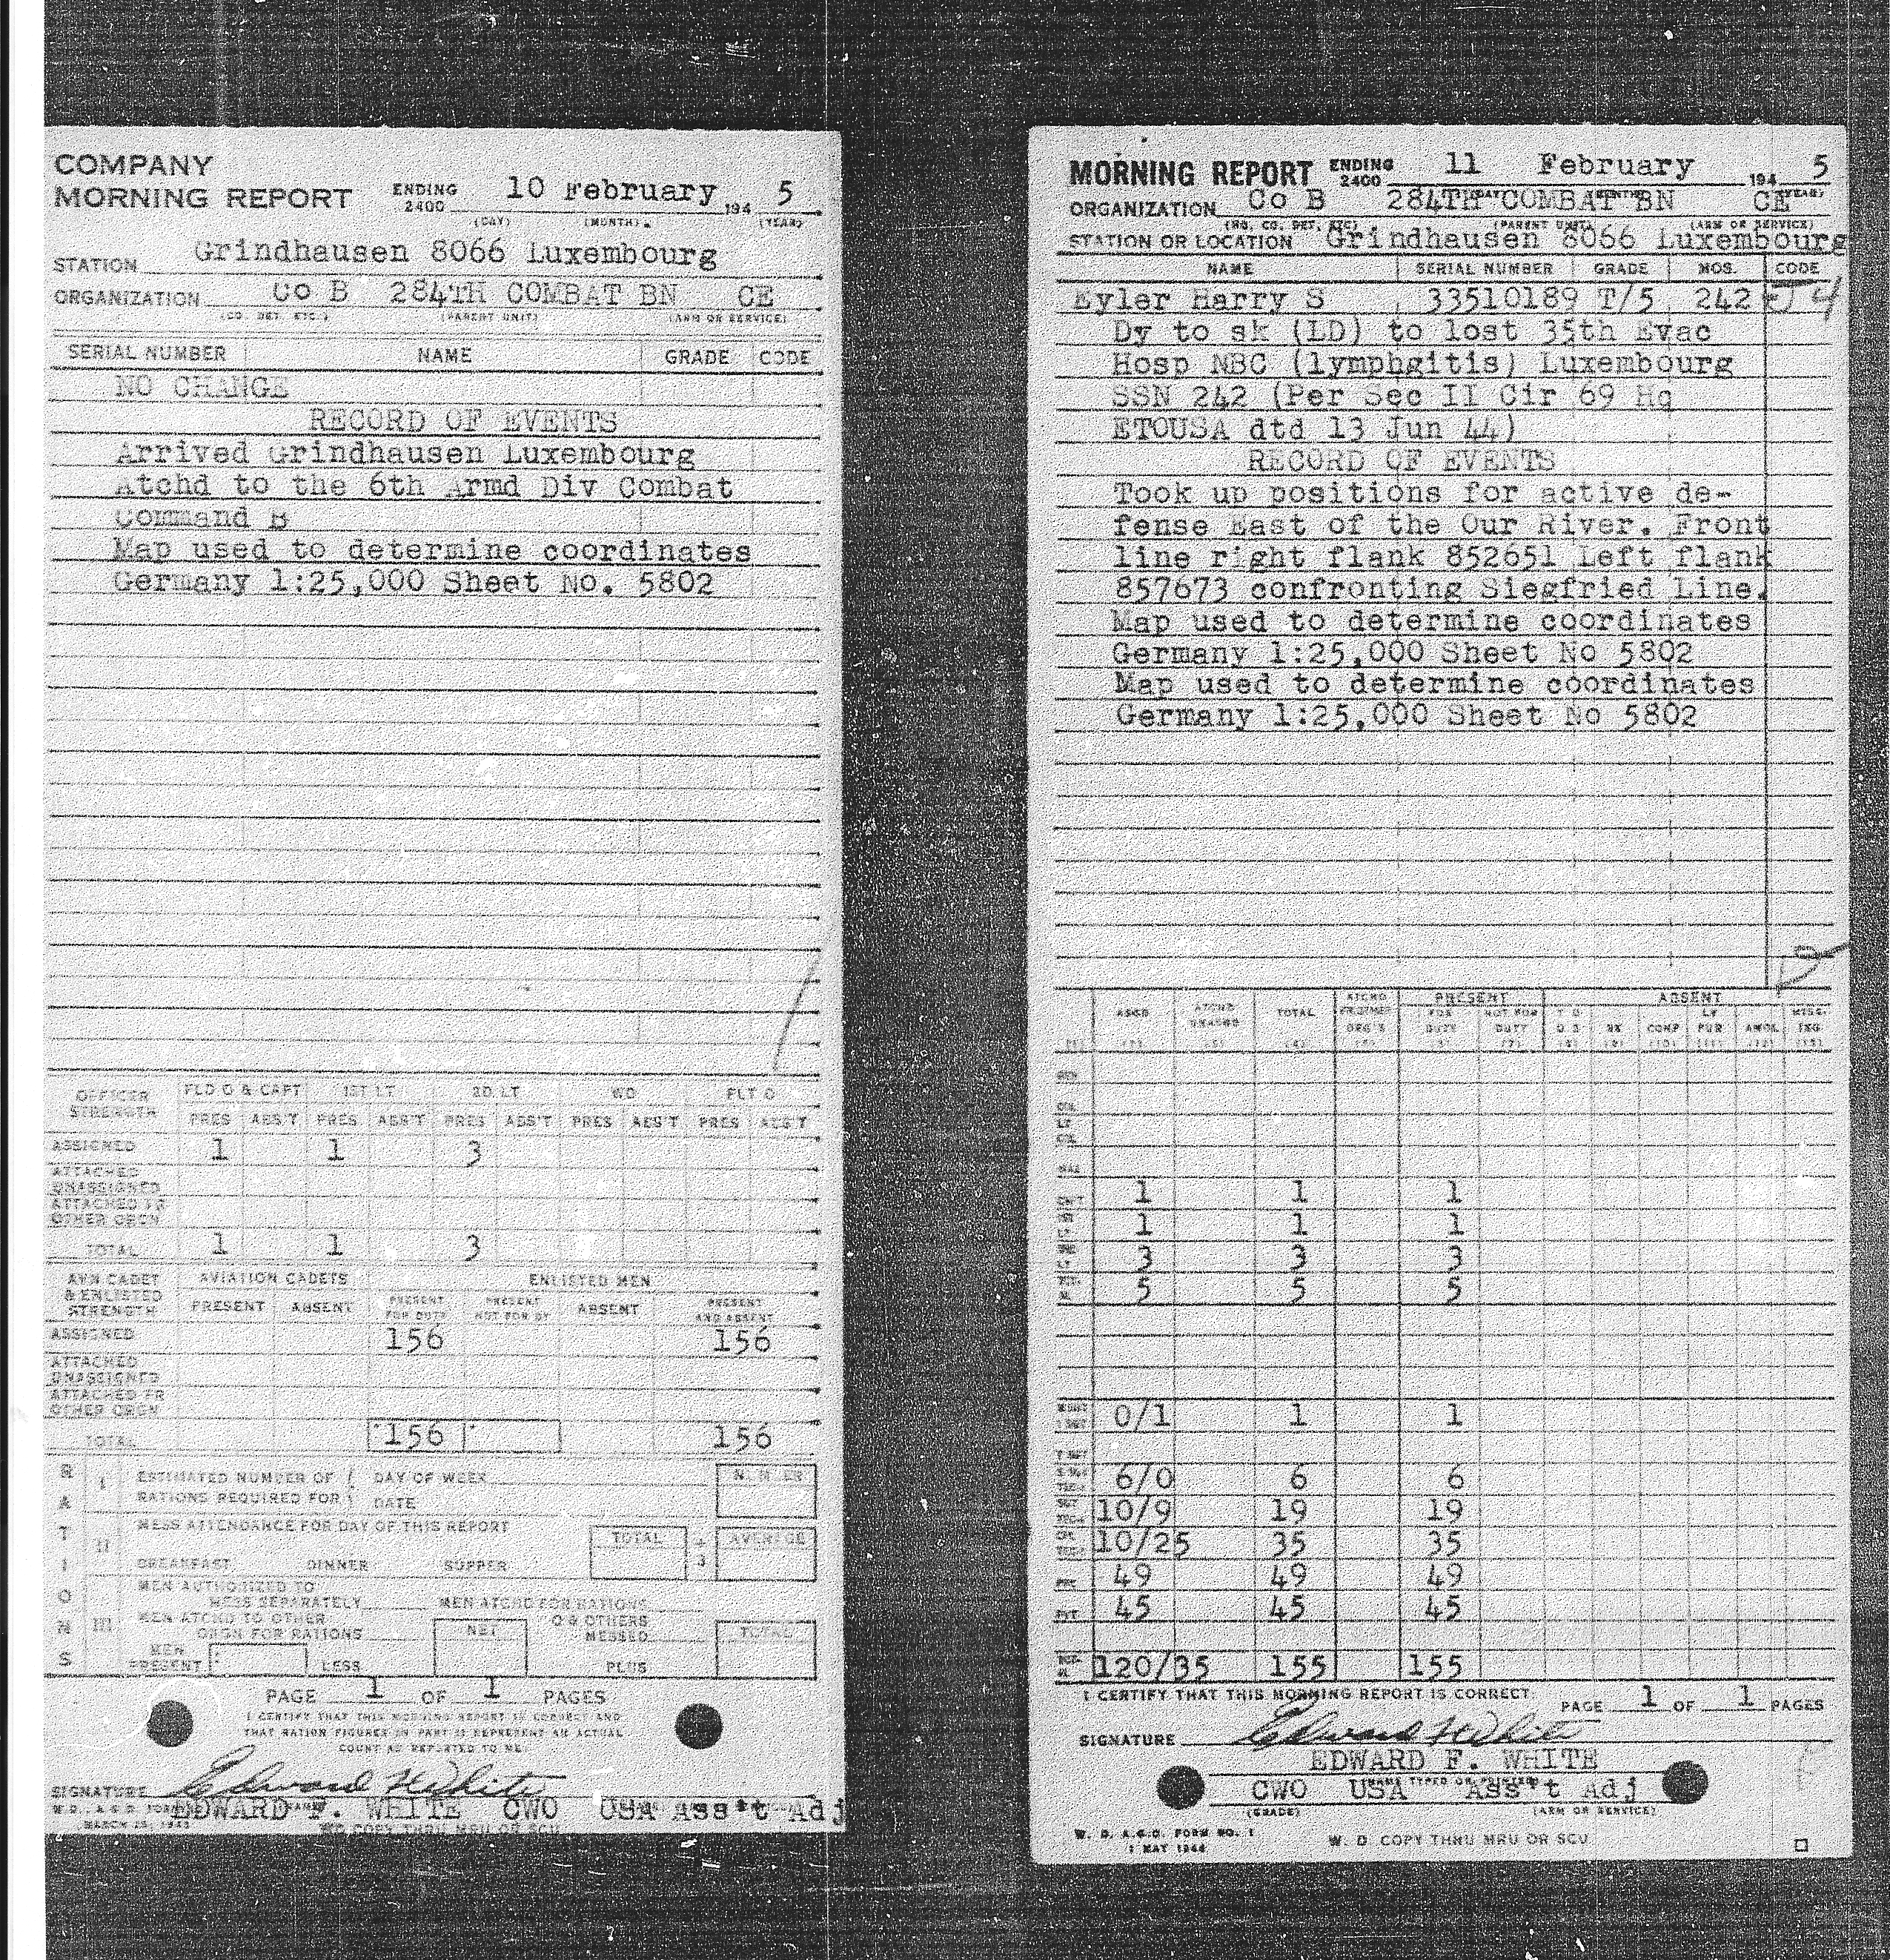 COMPANY
MORNING REPORT ENDING 2400 10 February 194 5
(DAY) (MONTH) (YEAR)
STATION Grindhausen 8066 Luxembourg
ORGANIZATION Co B 284TH COMBAT BN CE
(CO. DET. ETC.) (PARENT UNIT) (ARM OR SERVICE)
SERIAL NUMBER NAME GRADE CODE
NO CHANGE
RECORD OF EVENTS
Arrived Grindhausen Luxembourg
Atchd to the 6th Armd Div Combat
Command B
Map used to determine coordinates
Germany 1:25,000 Sheet No. 5802
OFFICER STRENGTH FLD O & CAPT 1ST LT 2D LT WO FLT O
PRES ABS'T PRES ABS'T PRES ABS'T PRES ABS'T PRES ABS'T
ASSIGNED 1 1 3
ATTACHED UNASSIGNED
ATTACHED FR OTHER ORGN
TOTAL 1 1 3
AVN CADET & ENLISTED STRENGTH AVIATION CADETS ENLISTED MEN
PRESENT ABSENT PRESENT FOR DUTY PRESENT NOT FOR DY ABSENT PRESENT AND ABSENT
ASSIGNED 156 156
ATTACHED UNASSIGNED
ATTACHED FR OTHER ORGN
TOTAL 156 156
RATIONS
I ESTIMATED NUMBER OF DAY OF WEEK
RATIONS REQUIRED FOR DATE
II MESS ATTENDANCE FOR DAY OF THIS REPORT TOTAL ÷ 3 AVERAGE
BREAKFAST DINNER SUPPER
III MEN AUTHORIZED TO
MESS SEPARATELY MEN ATCHD FOR RATIONS
MEN ATCHD TO OTHER ORGN FOR RATIONS NET O & OTHERS MESSED TOTAL
MEN PRESENT LESS PLUS
PAGE 1 OF 1 PAGES
I CERTIFY THAT THIS MORNING REPORT IS CORRECT AND
THAT RATION FIGURES IN PART II REPRESENT AN ACTUAL
COUNT AS REPORTED TO ME
SIGNATURE Edward F White
W. D., A. G. O. FORM EDWARD F. WHITE CWO USA Ass't Adj
MARCH 25, 1943 WD COPY THRU MRU OR SCU
MORNING REPORT ENDING 2400 11 February 194 5
(DAY) (MONTH) (YEAR)
ORGANIZATION Co B 284TH COMBAT BN CE
(HQ, CO. DET, ETC) (PARENT UNIT) (ARM OR SERVICE)
STATION OR LOCATION Grindhausen 8066 Luxembourg
NAME SERIAL NUMBER GRADE MOS. CODE
Eyler Harry S 33510189 T/5 242
Dy to sk (LD) to lost 35th Evac
Hosp NBC (lymphgitis) Luxembourg
SSN 242 (Per Sec II Cir 69 Hq
ETOUSA dtd 13 Jun 44)
RECORD OF EVENTS
Took up positions for active de-
fense East of the Our River. Front
line right flank 852651 Left flank
857673 confronting Siegfried Line.
Map used to determine coordinates
Germany 1:25,000 Sheet No 5802
Map used to determine coordinates
Germany 1:25,000 Sheet No 5802
PRESENT ABSENT
ASGD ATCHD UNASGD TOTAL ATCHD FR OTHER ORG'S FOR DUTY NOT FOR DUTY T D D S SK CONF LV FUR AWOL MISG. ING
GEN
COL
LT COL
MAJ
CAPT 1 1 1
1ST LT 1 1 1
2ND LT 3 3 3
5 5 5
0/1 1 1
T SGT
6/0 6 6
10/9 19 19
10/25 35 35
PFC 49 49 49
PVT 45 45 45
120/35 155 155
I CERTIFY THAT THIS MORNING REPORT IS CORRECT. PAGE 1 OF 1 PAGES
SIGNATURE Edward F White
EDWARD F. WHITE
(NAME TYPED OR PRINTED)
CWO USA Ass't Adj
(GRADE) (ARM OR SERVICE)
W. D. A.G.O. FORM NO. 1
1 MAY 1944
W. D. COPY THRU MRU OR SCU